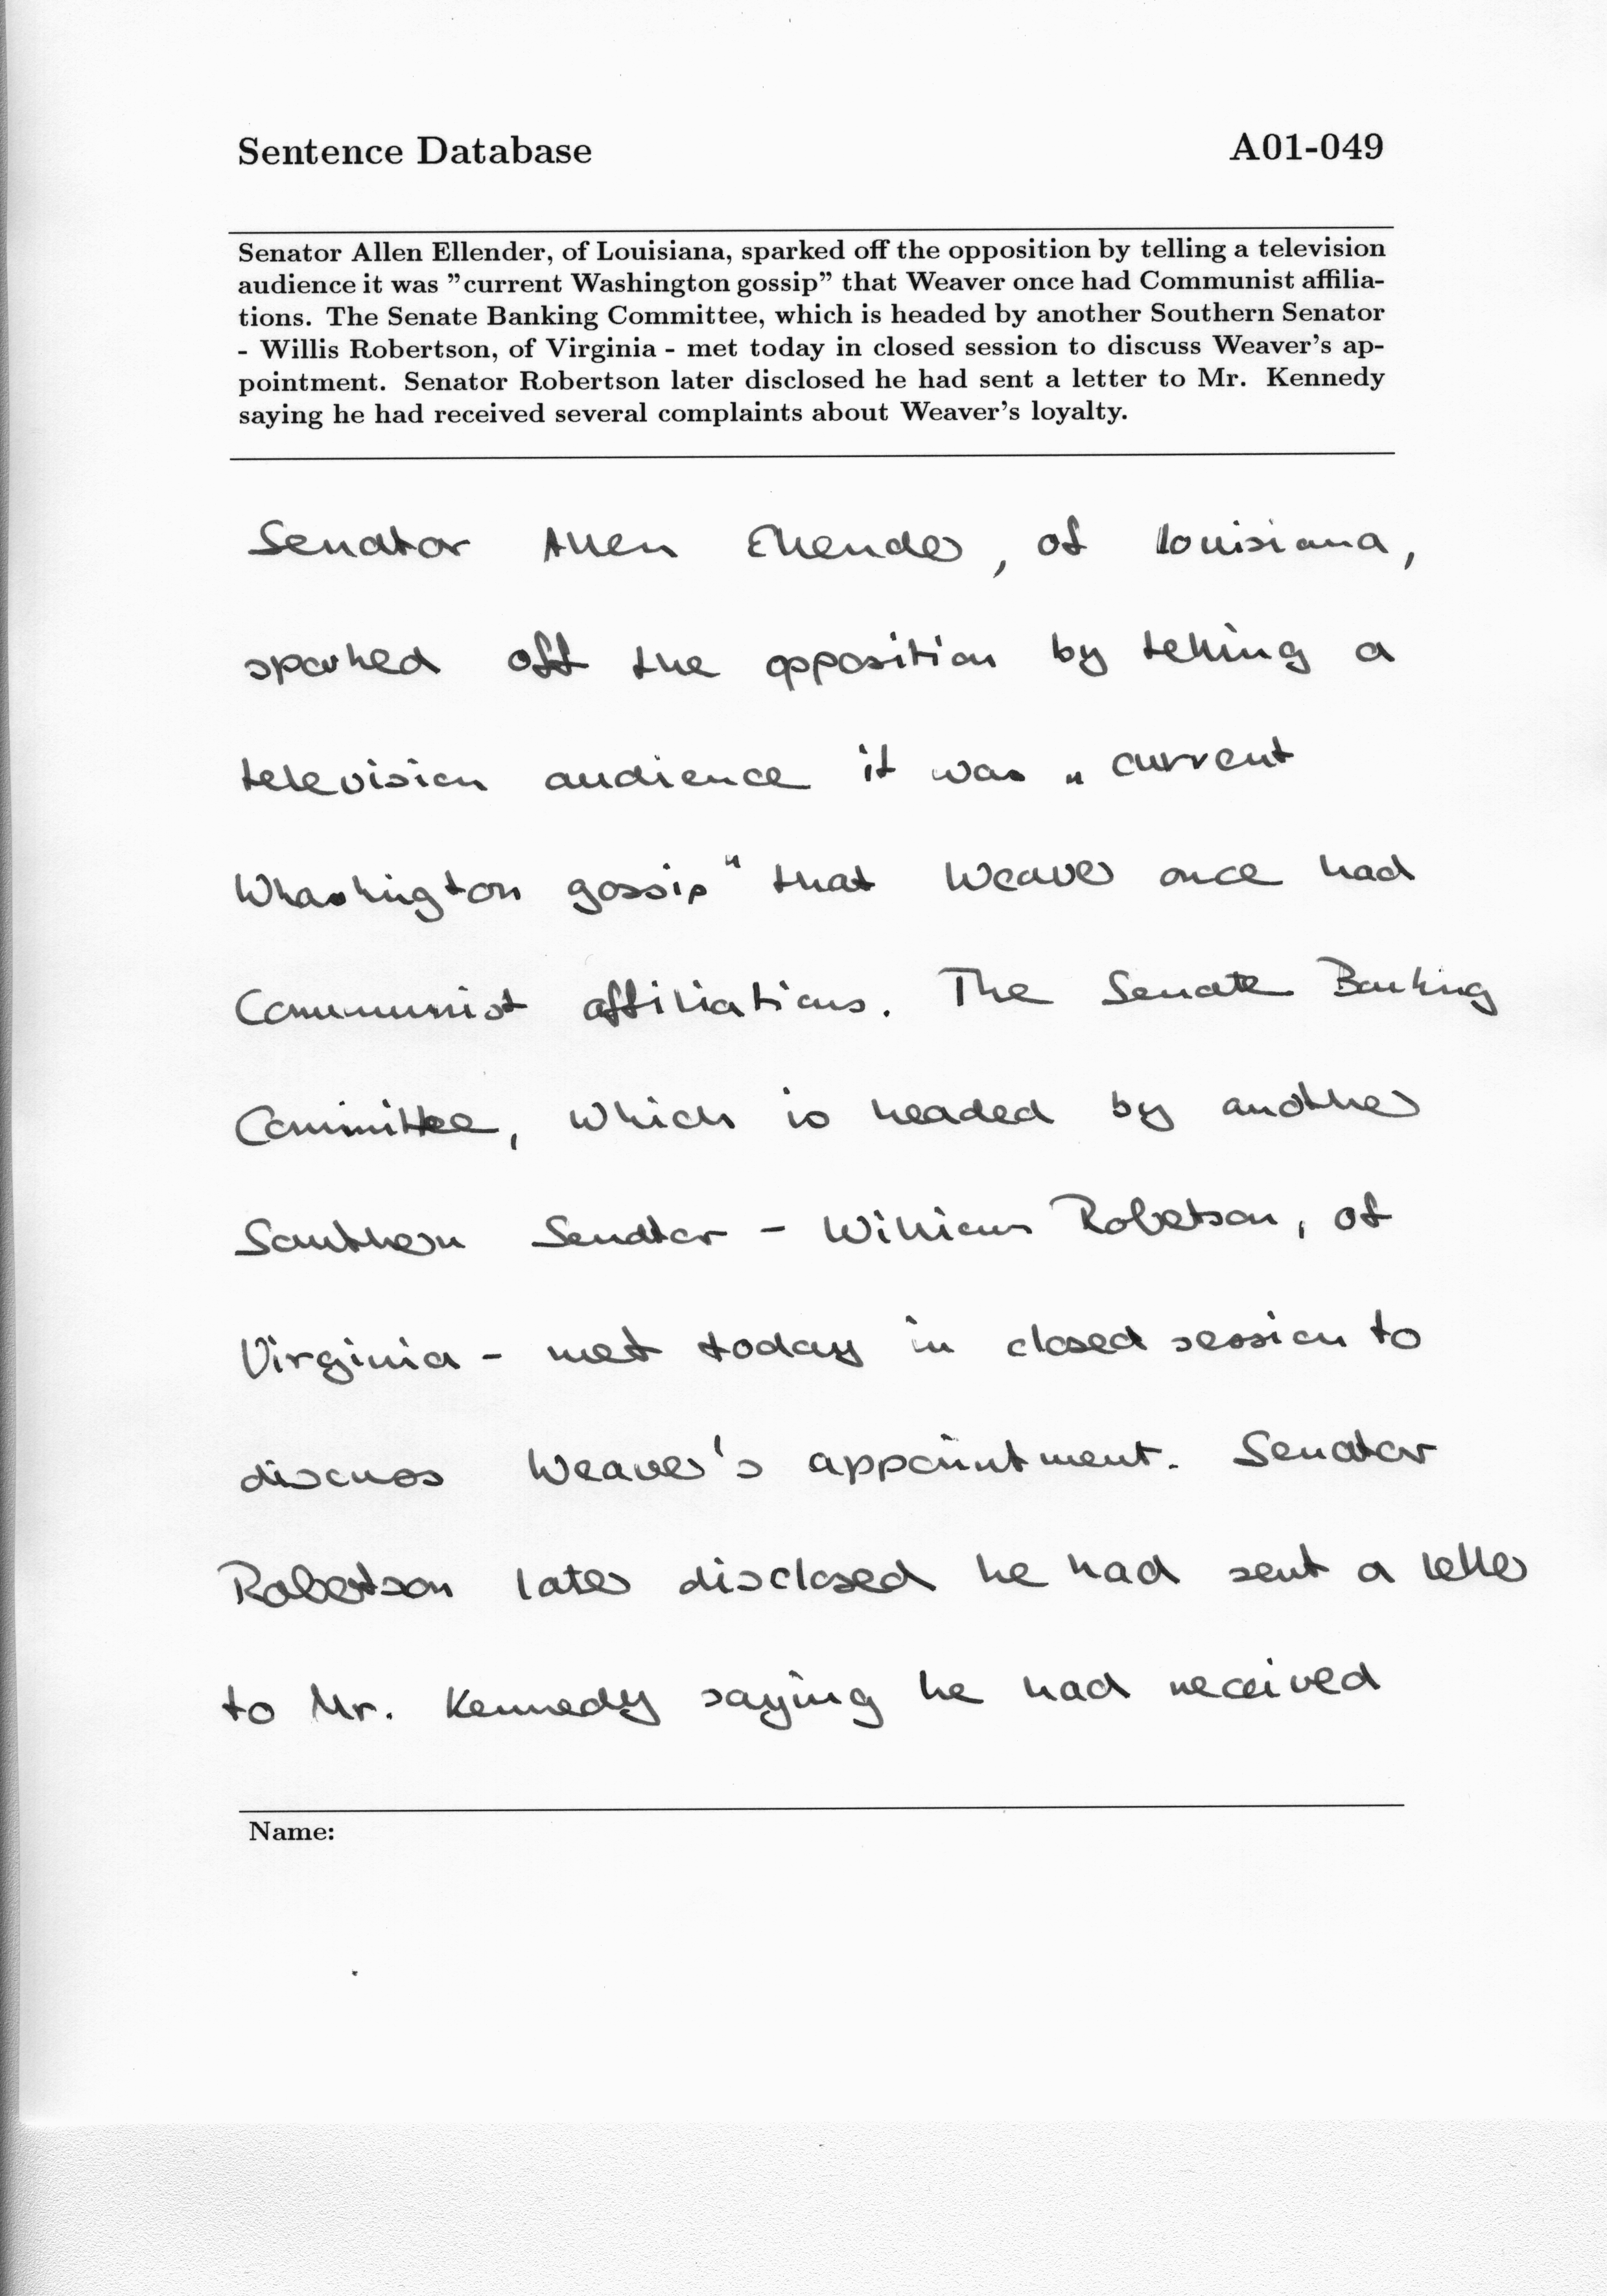 Sentence Database A01-049
Senator Allen Ellender, of Louisiana, sparked off the opposition by telling a television
audience it was ”current Washington gossip” that Weaver once had Communist affilia-
tions. The Senate Banking Committee, which is headed by another Southern Senator
- Willis Robertson, of Virginia - met today in closed session to discuss Weaver’s ap-
pointment. Senator Robertson later disclosed he had sent a letter to Mr. Kennedy
saying he had received several complaints about Weaver’s loyalty.
Senator Allen Ellender, of Louisiana,
sparked off the opposition by telling a
television audience it was „current
Whashington gossip" that Weaver once had
Communist affiliations. The Senate Banking
Committee, which is headed by another
Southern Senator - Williams Robetson, of
Virginia - met today in closed session to
discuss Weaver's appointment. Senator
Robertson later disclosed he had sent a letter
to Mr. Kennedy saying he had received
Name: